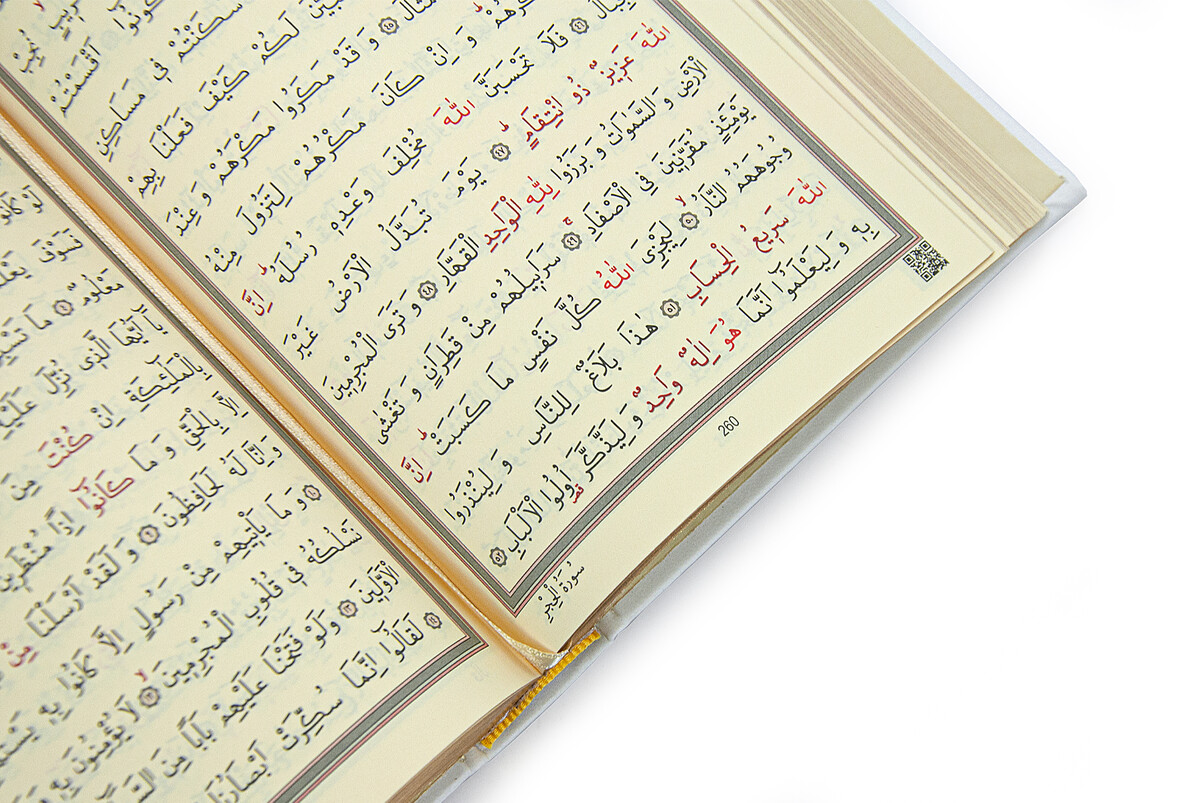 قَرِيبٍ نُجِبْ
اَقْسَمْتُمْ
سَكَنْتُمْ فِي مَسَاكِنِ
لَكُمْ كَيْفَ فَعَلْنَا بِهِمْ
٤٥ وَ قَدْ مَكَرُوا مَكْرَهُمْ وَ عِنْدَ
وَ اِنْ كَانَ مَكْرُهُمْ لِتَزُولَ مِنْهُ
٤٦ فَلَا تَحْسَبَنَّ اللّٰهَ مُخْلِفَ وَعْدِهٖ رُسُلَهُ اِنَّ
اللّٰهَ عَزِيزٌ ذُو انْتِقَامٍ ٤٧ يَوْمَ تُبَدَّلُ الْاَرْضُ غَيْرَ
الْاَرْضِ وَ السَّمٰوَاتُ وَ بَرَزُوا لِلّٰهِ الْوَاحِدِ الْقَهَّارِ ٤٨ وَ تَرَى الْمُجْرِمِينَ
يَوْمَئِذٍ مُقَرَّنِينَ فِي الْاَصْفَادِ ٤٩ سَرَابِيلُهُمْ مِنْ قَطِرَانٍ وَ تَغْشٰى
وُجُوهَهُمُ النَّارُ ٥٠ لِيَجْزِيَ اللّٰهُ كُلَّ نَفْسٍ مَا كَسَبَتْ اِنَّ
اللّٰهَ سَرِيعُ الْحِسَابِ ٥١ هٰذَا بَلَاغٌ لِلنَّاسِ وَ لِيُنْذَرُوا
بِهٖ وَ لِيَعْلَمُوا اَنَّمَا هُوَ اِلٰهٌ وَاحِدٌ وَ لِيَذَّكَّرَ اُولُوا الْاَلْبَابِ ٥٢
260
سُورَةُ الْحِجْرِ
لَوْ كَانُوا
فَسَوْفَ
مَعْلُومٌ ٤ مَا
يَا اَيُّهَا الَّذِي نُزِّلَ
بِالْمَلٰٓئِكَةِ اِنْ كُنْتَ مِنَ
اِلَّا بِالْحَقِّ وَ مَا كَانُوا اِذًا مُنْظَرِينَ
وَ اِنَّا لَهُ لَحَافِظُونَ ٩ وَ لَقَدْ اَرْسَلْنَا مِنْ
١٠ وَ مَا يَأْتِيهِمْ مِنْ رَسُولٍ اِلَّا كَانُوا بِهٖ
نَسْلُكُهُ فِي قُلُوبِ الْمُجْرِمِينَ ١٢ لَا يُؤْمِنُونَ بِهٖ
الْاَوَّلِينَ ١٣ وَلَوْ فَتَحْنَا عَلَيْهِمْ بَابًا مِنَ
١٤ لَقَالُوا اِنَّمَا سُكِّرَتْ اَبْصَارُنَا